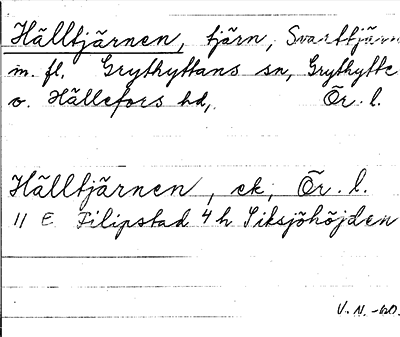 Hälltjärnen, tjärn, Svarttjärn
m. fl. Grythyttans sn, Grythytte
o. Hällefors hd, Ör. l.
Hälltjärnen, ek, Ör. l.
11 E Filipstad 4 h Siksjöhöjden
V. N. -60.